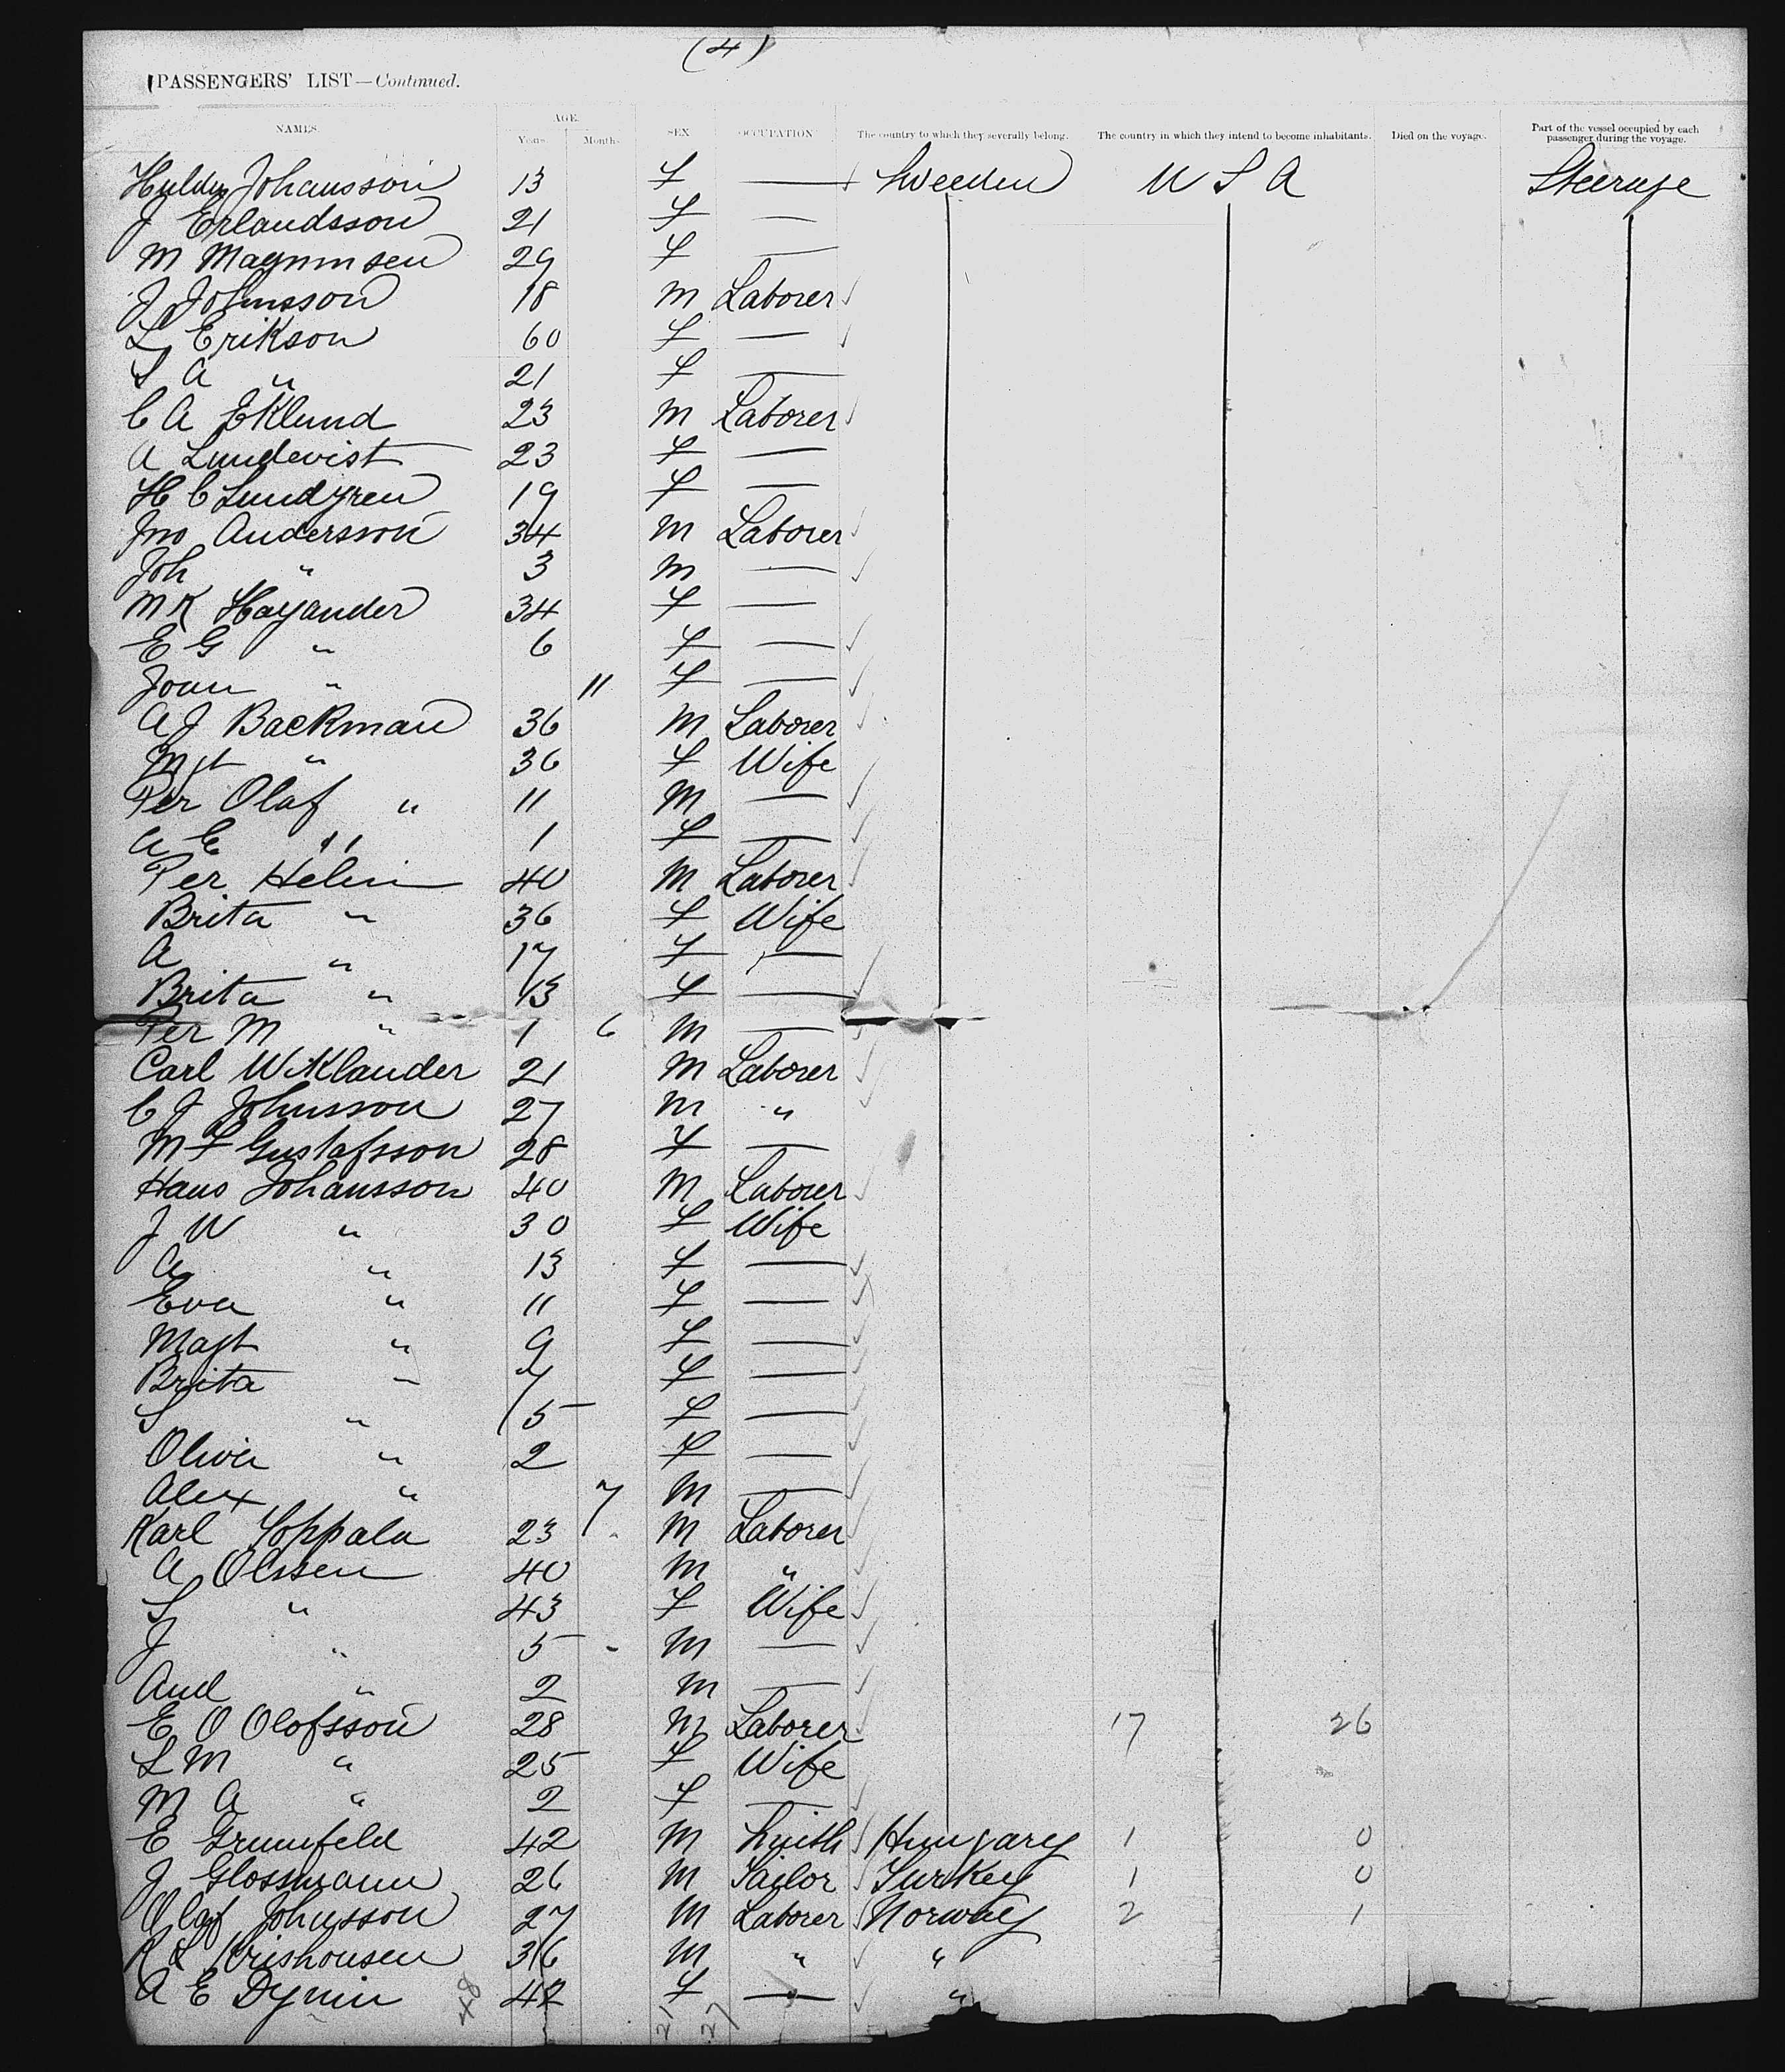 (4)
PASSENGERS' LIST—Continued.
NAMES. AGE. Years. Months. SEX OCCUPATION The country to which they severally belong. The country in which they intend to become inhabitants. Died on the voyage. Part of the vessel occupied by each passenger during the voyage.
Hulda Johansson 13 f — Sweeden U S A Steerage
J Erlandsson 21 f —
M Magnunsen 29 f —
J Johnsson 18 M Laborer
L Erikson 60 f —
S A " 21 f —
C A Eklund 23 M Laborer
A Lundevist 23 f —
H C Lundgren 19 f —
Jno Andersson 34 M Laborer
Joh " 3 M —
M K Hayander 34 f —
E G " 6 f —
Joan " 11 f —
A J Backman 36 M Laborer
Mgt " 36 f Wife
Per Olaf " 11 M —
A E " 1 f —
Per Helin 40 M Laborer
Brita " 36 f Wife
A " 17 f —
Brita " 13 f —
Per M " 1 6 M —
Carl Wiklander 21 M Laborer
C J Johnsson 27 M "
M F Gustafsson 28 f —
Hans Johansson 40 M Laborer
J W " 30 f Wife
A " 13 f —
Eva " 11 f —
Magt " 9 f —
Brita " 7 f —
S " 5 f —
Oliva " 2 f —
Alex " 7 M —
Karl 23 M Laborer
A Olssen 40 M "
S " 43 f Wife
J " 5 - M —
And " 2 M —
E O Olofsson 28 M Laborer 17 26
S M " 25 f Wife
M A " 2 f —
E Grunfeld 42 M Smith Hungary 1 0
J Glossmann 26 M Tailor Turkey 1 0
Olaf Johnsson 27 M Laborer Norway 2 1
K L 36 M " "
A E Dymin 42 f — "
48 21 27